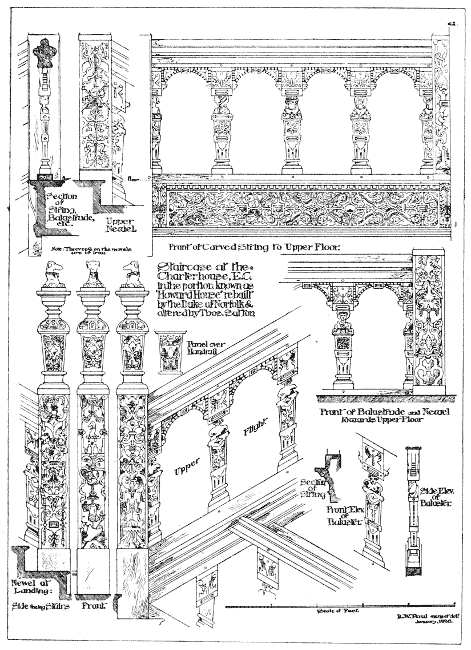 Section
of
String,
Balustrade,
etc.
Upper
Newel
Floor
Floor
Front of Carved String to Upper Floor:
Staircase at the
Charterhouse, E.C.
in the portion known as
"Howard House" rebuilt
by the Duke of Norfolk &
altered by Thos. Sutton
Panel over
Handrail
Front of Balustrade and Newel
towards Upper Floor
Upper
Flight
Section
of
String
Front Elev.
of
Baluster
Side Elev.
of
Baluster
Newel at
Landing:
Side facing Stairs
Front
Scale of Feet